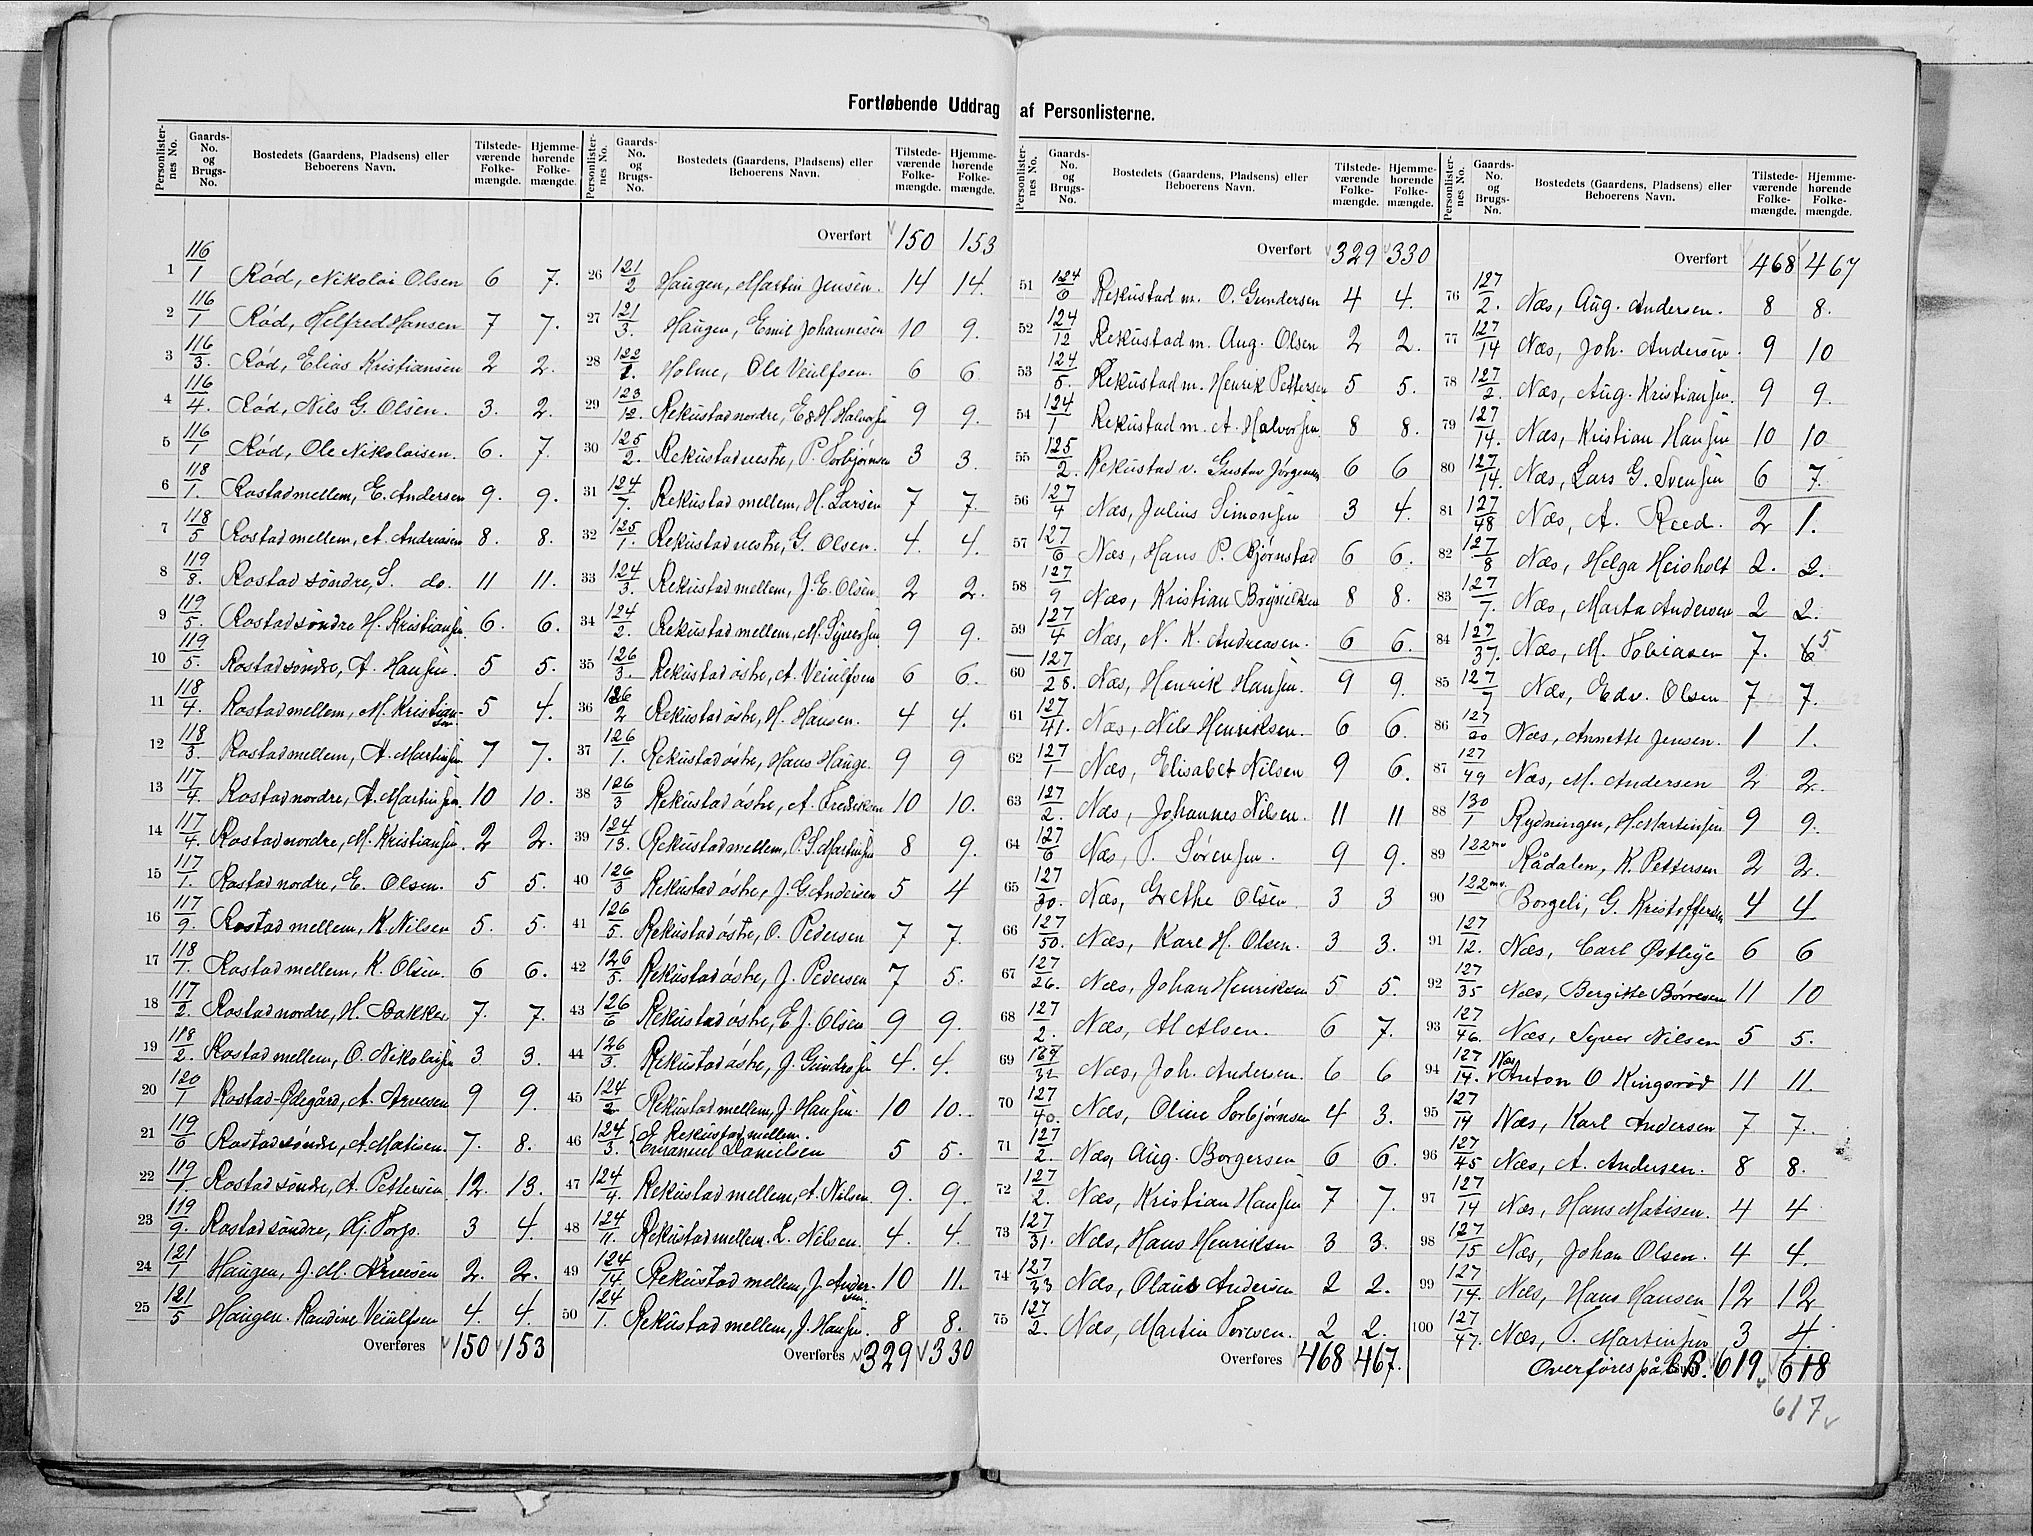 Fortløbende Uddrag af Personlisterne.
Personlister-nes No. Gaards-No. og Brugs-No. Bostedets (Gaardens, Pladsens) eller Beboerens Navn. Tilstede-værende Folke-mængde. Hjemme-hørende Folke-mængde.
1 116/1 Rød, Nikolai Olsen 6 7.
2 116/1 Rød, Helfred Hansen 7 7.
3 116/3. Rød, Elias Kristiansen 2 2.
4 116/4. Rød, Nils G. Olsen. 3. 2.
5 116/1 Rød, Ole Nikolaisen. 6. 7.
6 118/1. Rostad mellem, E. Andersen 9. 9.
7 118/5 Rostad mellem, A. Andreasen 8. 8.
8 119/8. Rostad søndre, S. do. 11 11.
9 119/5. Rostad søndre H. Kristiansen 6. 6.
10 119/5. Rostad søndre, A. Hansen. 5 5.
11 118/4. Rostad mellem, M. Kristiansen 5 4.
12 118/3. Rostad mellem, A. Martinsen. 7 7.
13 117/4. Rostad nordre, A. Martinsen. 10 10.
14 117/4. Rostad nordre, M. Kristiansen. 2 2.
15 117/1. Rostad nordre, E. Olsen. 5 5.
16 117/9. Rostad mellem, K. Nilsen 5. 5.
17 118/1. Rostad mellem, K. Olsen. 6 6.
18 117/2. Rostad nordre, H. Bakken 7. 7.
19 118/2. Rostad mellem, O. Nikolaisen 3 3.
20 120/1 Rostad-Ødegård, A. Arvesen 9 9.
21 119/6 Rostad søndre, A. Matisen. 7. 8.
22 119/1 Rostad søndre, A. Pettersen 12. 13.
23 119/9. Rostad søndre, Hj. Torp. 3 4.
24 121/1 Haugen, J. M. Arvesen 2. 2.
25 121/5 Haugen. Randine Veiulfsen 4. 4.
Overføres 150 153
Personlister-nes No. Gaards-No. og Brugs-No. Bostedets (Gaardens, Pladsens) eller Beboerens Navn. Tilstede-værende Folke-mængde. Hjemme-hørende Folke-mængde.
Overført 150 153
26 121/2 Haugen, Martin Jensen. 14 14.
27 121/3. Haugen, Emil Johannesen 10 9.
28 122/1. Holme, Ole Veiulfsen. 6 6
29 123/12. Rekustad nordre, E & H Halvorsen 9 9.
30 125/2. Rekustad vestre, P. Torbjørnsen 3 3.
31 124/7. Rekustad mellem, H. Larsen 7 7.
32 125/1. Rekustad vestre, G. Olsen. 4. 4.
33 124/3. Rekustad mellem, J. E. Olsen. 2 2.
34 124/2. Rekustad mellem, M. Syversen 9 9.
35 126/3. Rekustad östre, A. Veiulfsen 6 6.
36 126/2 Rekustad östre, H. Hansen. 4 4.
37 126/1. Rekustad östre, Hans Hauge. 9 9
38 126/3 Rekustad östre, A. Fredriksen 10 10.
39 124/13. Rekustad mellem, P. S. Martinsen 8 9.
40 126/3 Rekustad östre, J. G. Andersen 5 4
41 126/5. Rekustad östre, O. Pedersen 7 7.
42 126/5. Rekustad östre, J. Pedersen 7 5.
43 126/6 Rekustad östre, E. J. Olsen 9 9.
44 126/3. Rekustad östre, J. Gundersen 4. 4.
45 124/2. Rekustad mellem, J. Hansen. 10 10.
46 124/3. Rekustad mellem.
Emanuel Danielsen 5 5.
47 124/4. Rekustad mellem, A. Nilsen 9. 9.
48 124/11. Rekustad mellem. L. Nilsen. 4. 4.
49 124/14. Rekustad mellem, J. Andersen 10 11.
50 124/1. Rekustad mellem, J. Hansen. 8 8.
Overføres 329 330
Personlister-nes No. Gaards-No. og Brugs-No. Bostedets (Gaardens, Pladsens) eller Beboerens Navn. Tilstede-værende Folke-mængde. Hjemme-hørende Folke-mængde.
Overført 329 330
51 124/6 Rekustad m. O. Gundersen 4 4.
52 124/12 Rekustad m. Aug. Olsen 2 2.
53 124/5. Rekustad m. Henrik Pettersen 5 5.
54 124/1 Rekustad m. A. Halvorsen. 8 8.
55 125/2. Rekustad v. Gustav Jørgensen 6 6
56 127/4 Næs, Julius Simonsen 3 4.
57 127/6 Næs, Hans P. Bjørnstad 6 6.
58 127/9 Næs, Kristian Brynildsen 8 8.
59 127/4 Næs, N. K. Andreasen. 6 6.
60 127/28. Næs, Henrik Hansen. 9 9.
61 127/41. Næs, Nils Henriksen. 6 6.
62 127/1 Næs, Elisabet Nilsen 9 6.
63 127/2. Næs, Johannes Nilsen. 11 11
64 127/6 Næs, T. Sörensen. 9 9.
65 127/30. Næs, Grethe Olsen. 3 3
66 127/50. Næs, Karl H. Olsen. 3 3.
67 127/26. Næs, Johan Henriksen 5 5.
68 127/2. Næs, Al Alsen. 6 7.
69 127/32 Næs, Joh. Andersen. 6 6
70 127/40. Næs, Oline Torbjørnsen 4 3.
71 127/2. Næs, Aug. Borgersen 6 6.
72 127/2. Næs, Kristian Hansen 7 7.
73 127/31. Næs, Hans Henriksen 3 3.
74 127/33 Næs, Olaus Andersen 2 2.
75 127/2. Næs, Martin Toresen. 2 2.
Overføres 468 467.
Personlister-nes No. Gaards-No. og Brugs-No. Bostedets (Gaardens, Pladsens) eller Beboerens Navn. Tilstede-værende Folke-mængde. Hjemme-hørende Folke-mængde.
Overført 468 467
76 127/2. Næs, Aug. Andersen. 8 8.
77 127/14 Næs, Joh. Andersen. 9 10
78 127/2. Næs, Aug. Kristiansen. 9 9.
79 127/14. Næs, Kristian Hansen 10 10
80 127/14. Næs, Lars G. Svensen 6 7.
81 127/48 Næs, A. Reed. 2 1.
82 127/8 Næs, Helga Heisholt 2. 2.
83 127/7. Næs, Marta Andersen 2 2.
84 127/37. Næs, M. Tobiasen 7. 6 5
85 127/7 Næs, Edv. Olsen 7 7.
86 127/20 Næs, Annette Jensen. 1 1.
87 127/49 Næs, M. Andersen 2 2.
88 130/1 Rydningen, H. Martinsen 9 9.
89 122 mv Rådalen, K. Pettersen 2 2.
90 122 mv. Borgeli, G. Kristoffersen 4 4
91 127/12. Næs, Carl Østlye 6 6
92 127/35 Næs, Bergitte Børresen 11 10
93 127/46. Næs, Syver Nilsen 5 5.
94 127/14. Næs Anton O Kingsrød 11 11.
95 127/14 Næs, Karl Andersen 7 7.
96 127/45 Næs, A. Andersen. 8 8.
97 127/14 Næs, Hans Matisen. 4 4
98 127/15 Næs, Johan Olsen. 4 4.
99 127/14. Næs, Hans Hansen 12 12
100 127/47. Næs, T. Martinsen 3 4.
Overføres på B. 619 618
617